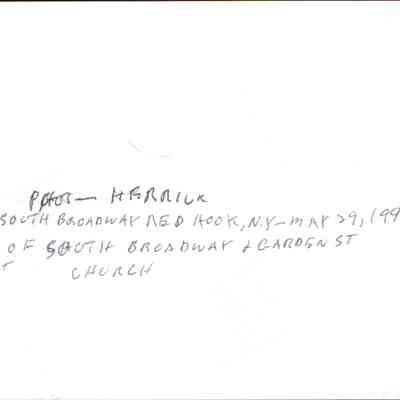 PHOTO - HERRICK
SOUTH BROADWAY RED HOOK, N.Y - MAY 29, 199
OF SOUTH BROADWAY & GARDEN ST
T CHURCH